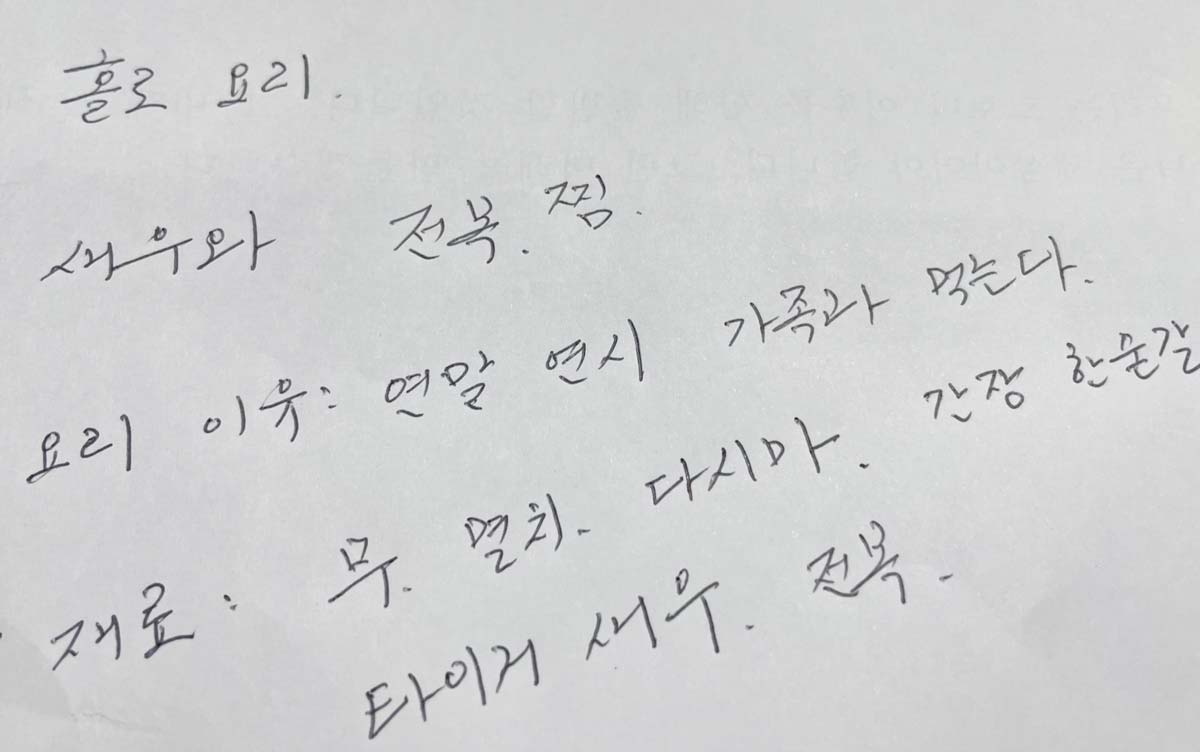 홀로 요리.
새우와 전복. 찜.
요리 이유: 연말 연시 가족과 먹는다.
재료: 무. 멸치. 다시마. 간장 한숟갈
타이거 새우. 전복.